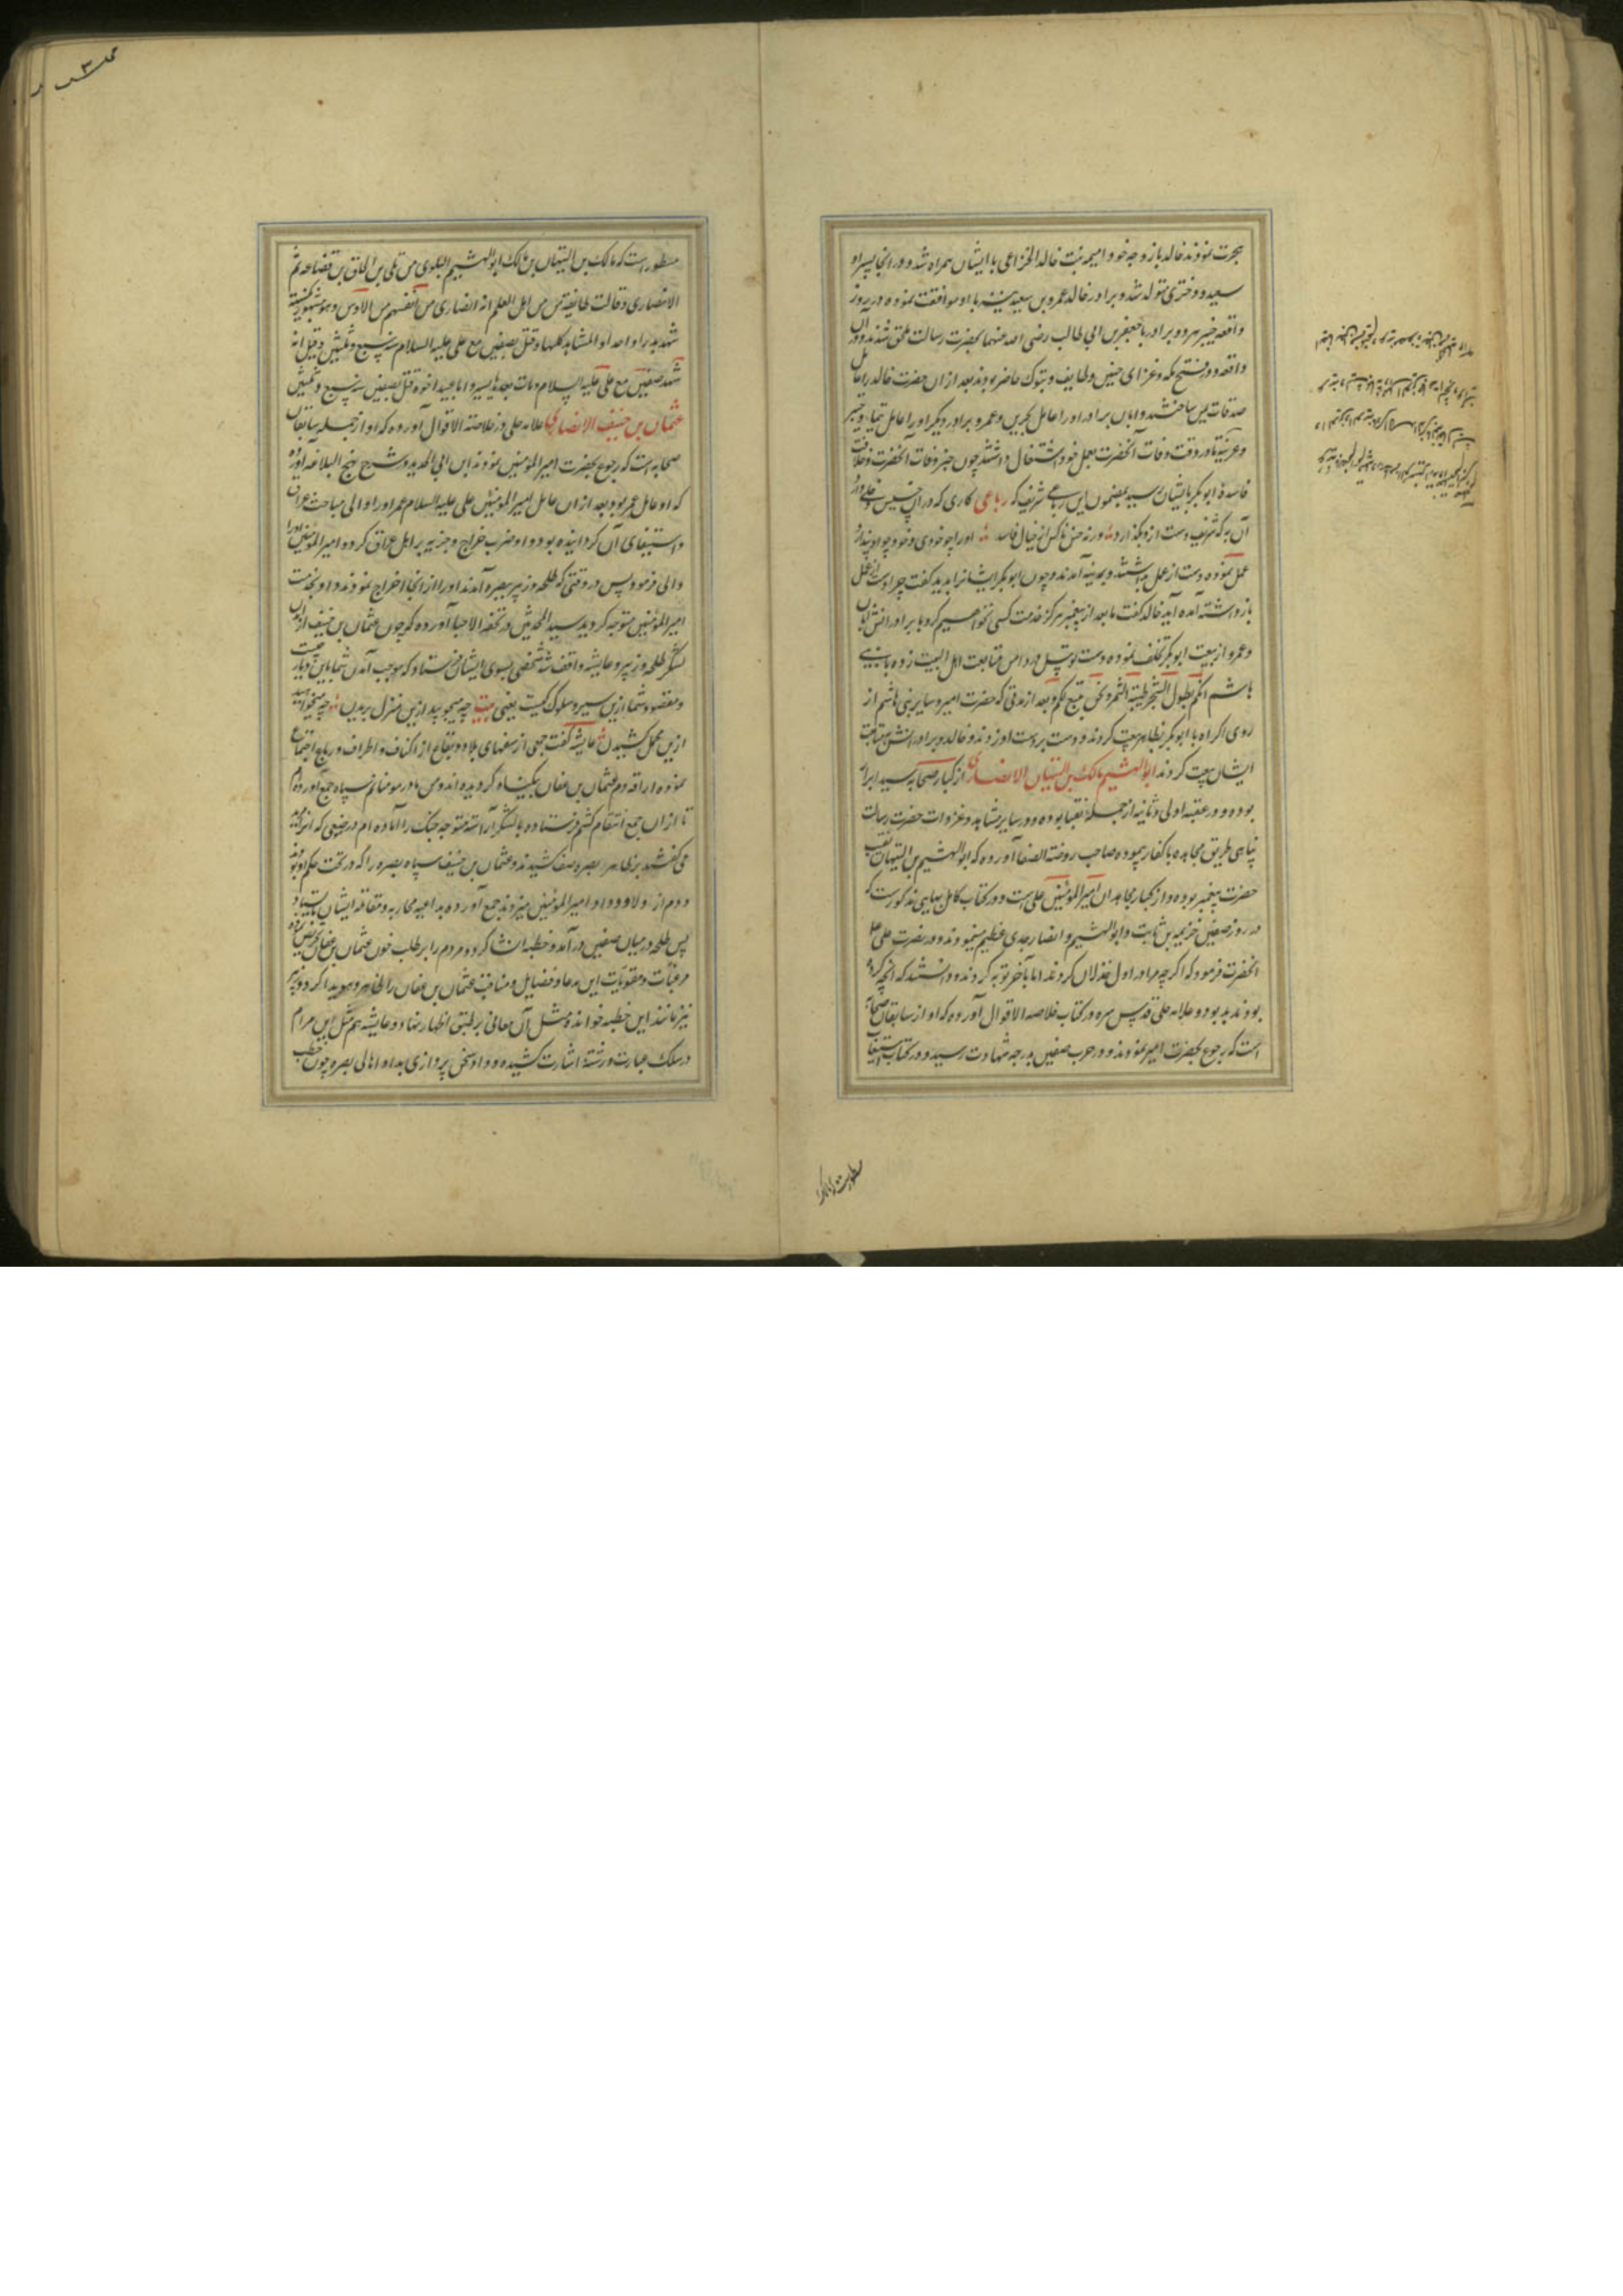 هجرت نمودند خالد بازوجه خود امیمه بنت خالد الخزاعی با ایشان همراه شد و در انجا پسر او
سعید و دختری متولد شد و برادر خالد عمرو بن سعید نیز با او موافقت نموده در روز
واقعه خیبر هر دو برادر با جعفر بن ابی طالب رضی الله عنهما بحضرت رسالت ملحق شدند و در آن
واقعه و در فتح مکه و غزای حنین و طایف و تبوک حاضر بودند بعد از ان حضرت خالد را عامل
صدقات یمن ساختند و ابان برادر او را عامل بحرین و عمرو برادر دیگر او را عامل تیما و خیبر
و عرنیه تا در وقت وفات آنحضرت بعمل خود اشتغال داشتند چون خبر وفات آنحضرت و خلافت
فاسده ابو بکر بایشان رسید بمضمون این رباعی شریف که رباعی کاری که در ان
آن به که شریف دست ازو بگذارد ورنه خس ناکس از خیال فاسد او را چو خودی و خود چو او پندارد
عمل نموده دست از عمل باز داشتند و بمدینه آمدند و چون ابو بکر ایشانرا بدید گفت چرا دست از عمل
باز داشته آمده اید خالد گفت ما بعد از پیغمبر هرگز خدمت کسی نخواهیم کرد با برادرانش ابان
و عمرو از بیعت ابو بکر تخلف نموده دست توسل در دامن متابعت اهل البیت زده با بنی
هاشم انکم لطول الشجر طیبة الثمر و نحن تبع لکم و بعد از مدتی که حضرت امیر و سایر بنی هاشم از
روی اکراه با ابو بکر بظاهر بیعت کردند و دست بر دست او زدند و خالد و برادرانش بمتابعت
ایشان بیعت کردند ابو الهیثم مالک بن التیهان الانصاری از کبار صحابه سید ابرار
بوده و در عقبه اولی و ثانیه از جمله نقبا بوده و در سایر مشاهد و غزوات حضرت رسالت
پناهی طریق مجاهده با کفار پیموده صاحب روضة الصفا آورده که ابو الهیثم بن التیهان نقیب
حضرت پیغمبر بوده و از کبار مجاهدان امیر المؤمنین علی است و در کتاب کامل بهایی مذکورست که
در روز صفین خزیمه بن ثابت و ابو الهیثم و انصار جدی عظیم مینمودند و در نصرت علی
انحضرت فرمود که اگر چه مرا در اول خذلان کردند اما بآخر توبه کردند و دانستند که انچه کرده
بودند بد بود و علامه حلی قدس سره در کتاب خلاصه الاقوال آورده که او از سابقان صحابه
است که رجوع بحضرت امیر نمودند و در حرب صفین بدرجه شهادت رسید و در کتاب استیعاب
مسطور است که مالک بن التیهان بن مالک ابو الهیثم البلوی من بلی بن الحاف بن قضاعه ثم
الانصاری و قالت طایفة من اهل العلم انه انصاری من انفسهم من الاوس و هو مشهور بکنیته
شهد بدرا و احدا و المشاهد کلها و قتل بصفین مع علی علیه السلام سنه سبع و ثلثین و قیل انه
شهد صفین مع علی علیه السلام و مات بعدها بیسیر و ابا عبید اخوه قتل بصفین سنه سبع و ثلثین
عثمان بن حنیف الانصاری علامه حلی در خلاصة الاقوال آورده که او از جمله سابقان
صحابه است که رجوع بحضرت امیر المؤمنین نمودند ابن ابی الحدید در شرح نهج البلاغه آورده
که او عامل عمر بود بعد از ان عامل امیر المؤمنین علی علیه السلام عمر او را والی مساحت عراق
و استیفای آن گردانیده بود و او ضرب خراج و جزیه بر اهل عراق کرد و امیر المؤمنین او را
والی فرمود پس در وقتی که طلحه و زبیر ببصره آمدند او را از انجا اخراج نمودند و او بخدمت
امیر المؤمنین متوجه گردید سید المحدثین در تحفه الاحبا آورده که چون عثمان بن حنیف از آمدن
لشکر طلحه و زبیر و عایشه واقف شد شخصی بسوی ایشان فرستاد که موجب آمدن شما باین دیار چیست
و مقصود شما ازین سیر و سلوک کیست یعنی بیت چه میجویید ازین منزل بریدن چه میخواهید
ازین محمل کشیدن عایشه گفت جمعی از سفهای بلاد و بقاع از اکناف و اطراف و رباع اجتماع
نموده اراقه دم عثمان بن عفان بیگناه کردیده اند و من مادر مومنانم سپاه جمع آورده ام
تا از ان جمع انتقام کشم فرستاده با لشکر آراسته متوجه جنگ را آماده ام درموضعی که انرا مربد
می گفتند بظاهر بصره صف کشیدند و عثمان بن حنیف سپاه بصره را که در تحت حکم او بودند
پس طلحه در میان صفین در آمد و خطبه انشا کرد و مردم را بر طلب خون عثمان بن عفان تحریص نموده
مرغبات و مقویات این مدعا و فضایل و مناقب عثمان بن عفان را ظاهر و هویدا کرد و زبیر
نیز مانند این خطبه خوانده مثل آن معانی بر طبق اظهار نهاد و عایشه هم مثل این مرام
در سلک عبارت و رشته اشارت کشیده و داد سخن پردازی بداد و اهالی بصره چون خطب
مسطورست که مالک